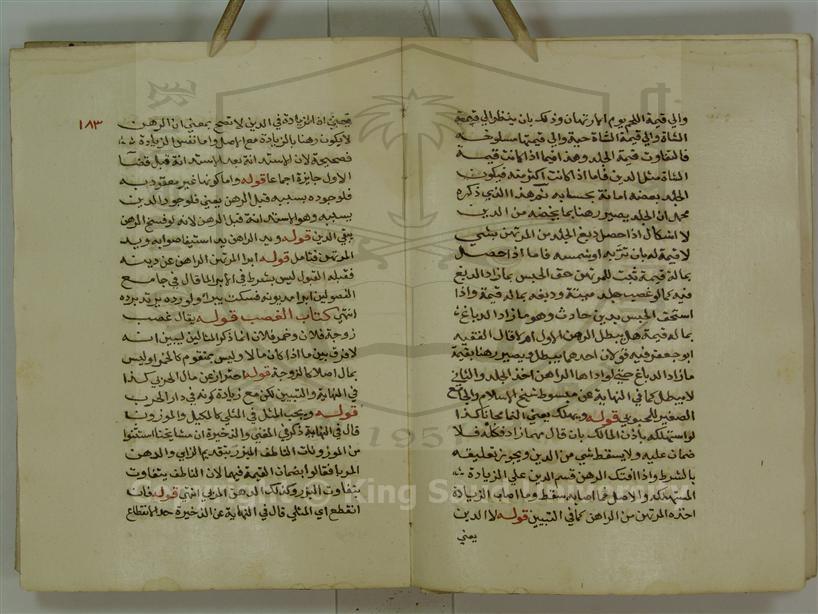 والي قيمة اللحم يوم الارتهان وذلك بان ينظر الي قيمة
الشاة والي قيمة الشاة حية والي قيمتها مسلوخة
فالتفاوت قيمة الجلد وهذا فيما اذا كانت قيمة
الشاة مثل الدين فاما اذا كانت اكثر منه فيكون
الجلد بعضه امانة بحسابه ثم هذا الذي ذكره
محمد ان الجلد يصير رهنا بما يخصه من الدين
لا اشكال اذا حصل دبغ الجلد من المرتهن بشي
لا قيمة له بان تربه او شمسه فاما اذا حصل
بماله قيمة ثبت للمرتهن حق الحبس بما زاد الدبغ
فيه كما لو غصب جلد ميتة ودبغه بماله قيمة واذا
استحق الحبس بدين حادث وهو ما زاد الدباغ
بماله قيمة هل يبطل الرهن الاول ام لا قال الفقيه
ابو جعفر فيه قولان احدهما يبطل ويصير رهنا بقيمة
ما زاد الدباغ حتي لو اداها الراهن اخذ الجلد والثاني
لا يبطل كما في النهاية عن مبسوط شيخ الاسلام والجامع
الصغير للمحبوبي قوله ويهلك يعني النما مجانا كذا
لو استهلكه باذن المالك بان قال مهما زاد فكله فلا
ضمان عليه ولا يسقط شي من الدين ويجوز تعليقه
بالشرط واذا افتك الرهن قسم الدين علي الزيادة
المستهلكه والاصل فما اصابه سقط وما اصاب الزيادة
اخذه المرتهن من الراهن كما في التبيين قوله لا الدين
يعني
١٨٣
فيجئ اذ الزيادة في الدين لا تصح بمعني ان الرهن
لا يكون رهنا بالزيادة مع الاصل واما نفس الزيادة
فصحيحة لان الاستدانة بعد الاستدانة قبل قضآ
الاول جايزة اجماعا قوله واما كونها غير معقود به
فلوجوده بسببه قبل الرهن يعني فلوجود الدين
بسببه وهو الاستدانة قبل الرهن لانه لو فسخ الرهن
يبقي الدين قوله ويد الراهن يد استيفا صوابه ويد
المرتهن فتامل قوله ابرا المرتهن الراهن عن دينه
فقبله القبول ليس بشرط في الابرا لما قال في جامع
الفصولين ابرا مديونه فسكت يبرا ولو رده يرتد برده
انتهي كتاب الغصب قوله يقال غصب
زوجة فلان وخمر فلان انما ذكر المثالين ليبين انه
لا فرق بين ما اذا كان مالا وليس بمتقوم كالخمر او ليس
بمال اصلا كالزوجة قوله احترازا عن مال الحربي كذا
في النهاية والتبيين لكن مع زيادة كونه في دار الحرب
قوله ويجب المثل في المثلي كالمكيل والموزون
قال في النهاية ذكر في المغني والذخيرة ان مشايخنا استثنوا
من الموزونات الناطف المبزر بتقديم الزاي والدهن
المربا فقالوا بضمان القيمة فيهما لان الناطف يتفاوت
بتفاوت البزر وكذلك الدهن المربي انتهي قوله فان
انقطع اي المثلي قال في النهاية عن الذخيرة حد الانقطاع